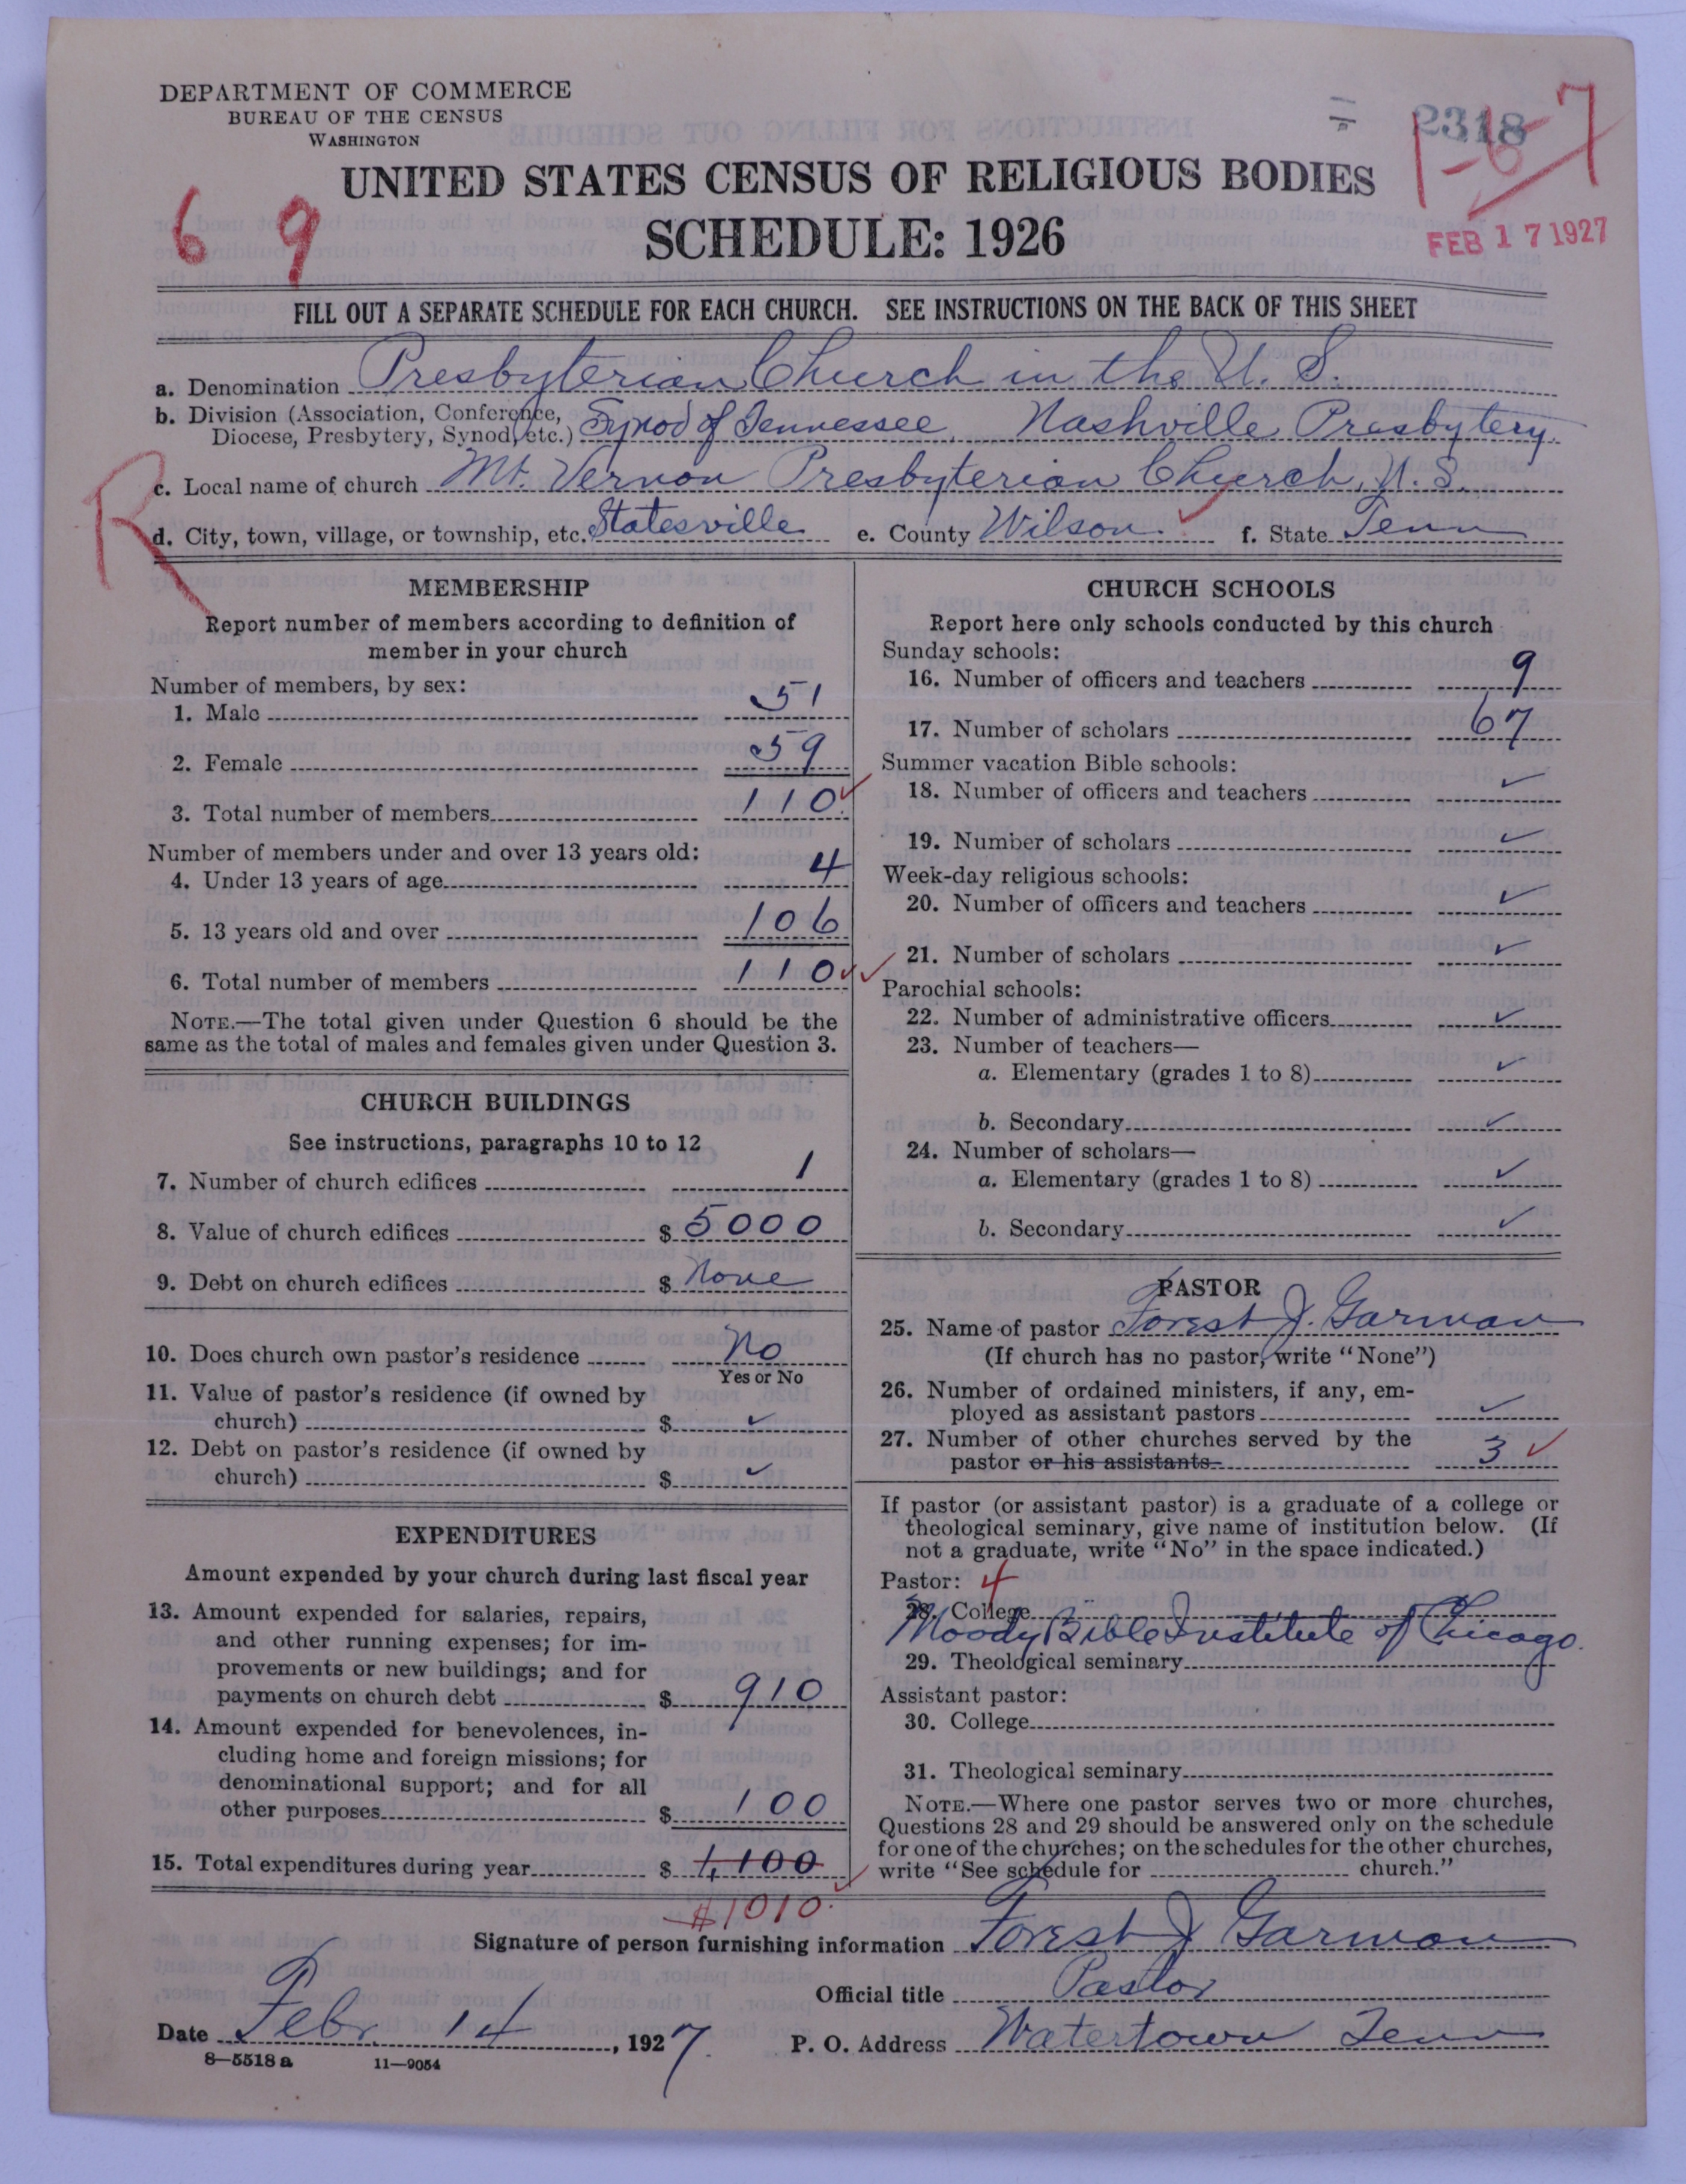 DEPARTMENT OF COMMERCE
BUREAU OF THE CENSUS
WASHINGTON
2318
1-6-7
UNITED STATES CENSUS OF RELIGIOUS BODIES
SCHEDULE: 1926
6 9
FEB 17 1927
FILL OUT A SEPARATE SCHEDULE FOR EACH CHURCH. SEE INSTRUCTIONS ON THE BACK OF THIS SHEET
a. Denomination Presbyterian Church in the U. S.
b. Division (Association, Conference, Diocese, Presbytery, Synod, etc.) Synod of Tennessee, Nashville Presbytery.
R
c. Local name of church Mt. Vernon Presbyterian Church, U. S.
d. City, town, village, or township, etc. Statesville e. County Wilson. f. State Tenn
MEMBERSHIP
Report number of members according to definition of
member in your church
Number of members, by sex:
1. Male 51
2. Female 59
3. Total number of members 110
Number of members under and over 13 years old:
4. Under 13 years of age 4
5. 13 years old and over 106
6. Total number of members 110
NOTE.—The total given under Question 6 should be the
same as the total of males and females given under Question 3.
CHURCH BUILDINGS
See instructions, paragraphs 10 to 12
7. Number of church edifices 1
8. Value of church edifices $ 5000
9. Debt on church edifices $ None
10. Does church own pastor's residence No
Yes or No
11. Value of pastor's residence (if owned by
church) $ ✓
12. Debt on pastor's residence (if owned by
church) $ ✓
EXPENDITURES
Amount expended by your church during last fiscal year
13. Amount expended for salaries, repairs,
and other running expenses; for im-
provements or new buildings; and for
payments on church debt $ 910
14. Amount expended for benevolences, in-
cluding home and foreign missions; for
denominational support; and for all
other purposes $ 100
15. Total expenditures during year $ 1,100
$1010
CHURCH SCHOOLS
Report here only schools conducted by this church
Sunday schools:
16. Number of officers and teachers 9
17. Number of scholars 67
Summer vacation Bible schools:
18. Number of officers and teachers ✓
19. Number of scholars ✓
Week-day religious schools:
20. Number of officers and teachers ✓
21. Number of scholars ✓
Parochial schools:
22. Number of administrative officers ✓
23. Number of teachers—
a. Elementary (grades 1 to 8) ✓
b. Secondary ✓
24. Number of scholars—
a. Elementary (grades 1 to 8) ✓
b. Secondary ✓
PASTOR
25. Name of pastor Forest J. Garman
(If church has no pastor, write "None")
26. Number of ordained ministers, if any, em-
ployed as assistant pastors ✓
27. Number of other churches served by the
pastor or his assistants 3 ✓
If pastor (or assistant pastor) is a graduate of a college or
theological seminary, give name of institution below. (If
not a graduate, write "No" in the space indicated.)
Pastor: 4
28. College
Moody Bible Institute of Chicago.
29. Theological seminary
Assistant pastor:
30. College
31. Theological seminary
NOTE.—Where one pastor serves two or more churches,
Questions 28 and 29 should be answered only on the schedule
for one of the churches; on the schedules for the other churches,
write "See schedule for church."
Signature of person furnishing information Forest J Garman
Official title Pastor
Date Febr. 14, 1927. P. O. Address Watertown Tenn
8—5518 a 11—9054